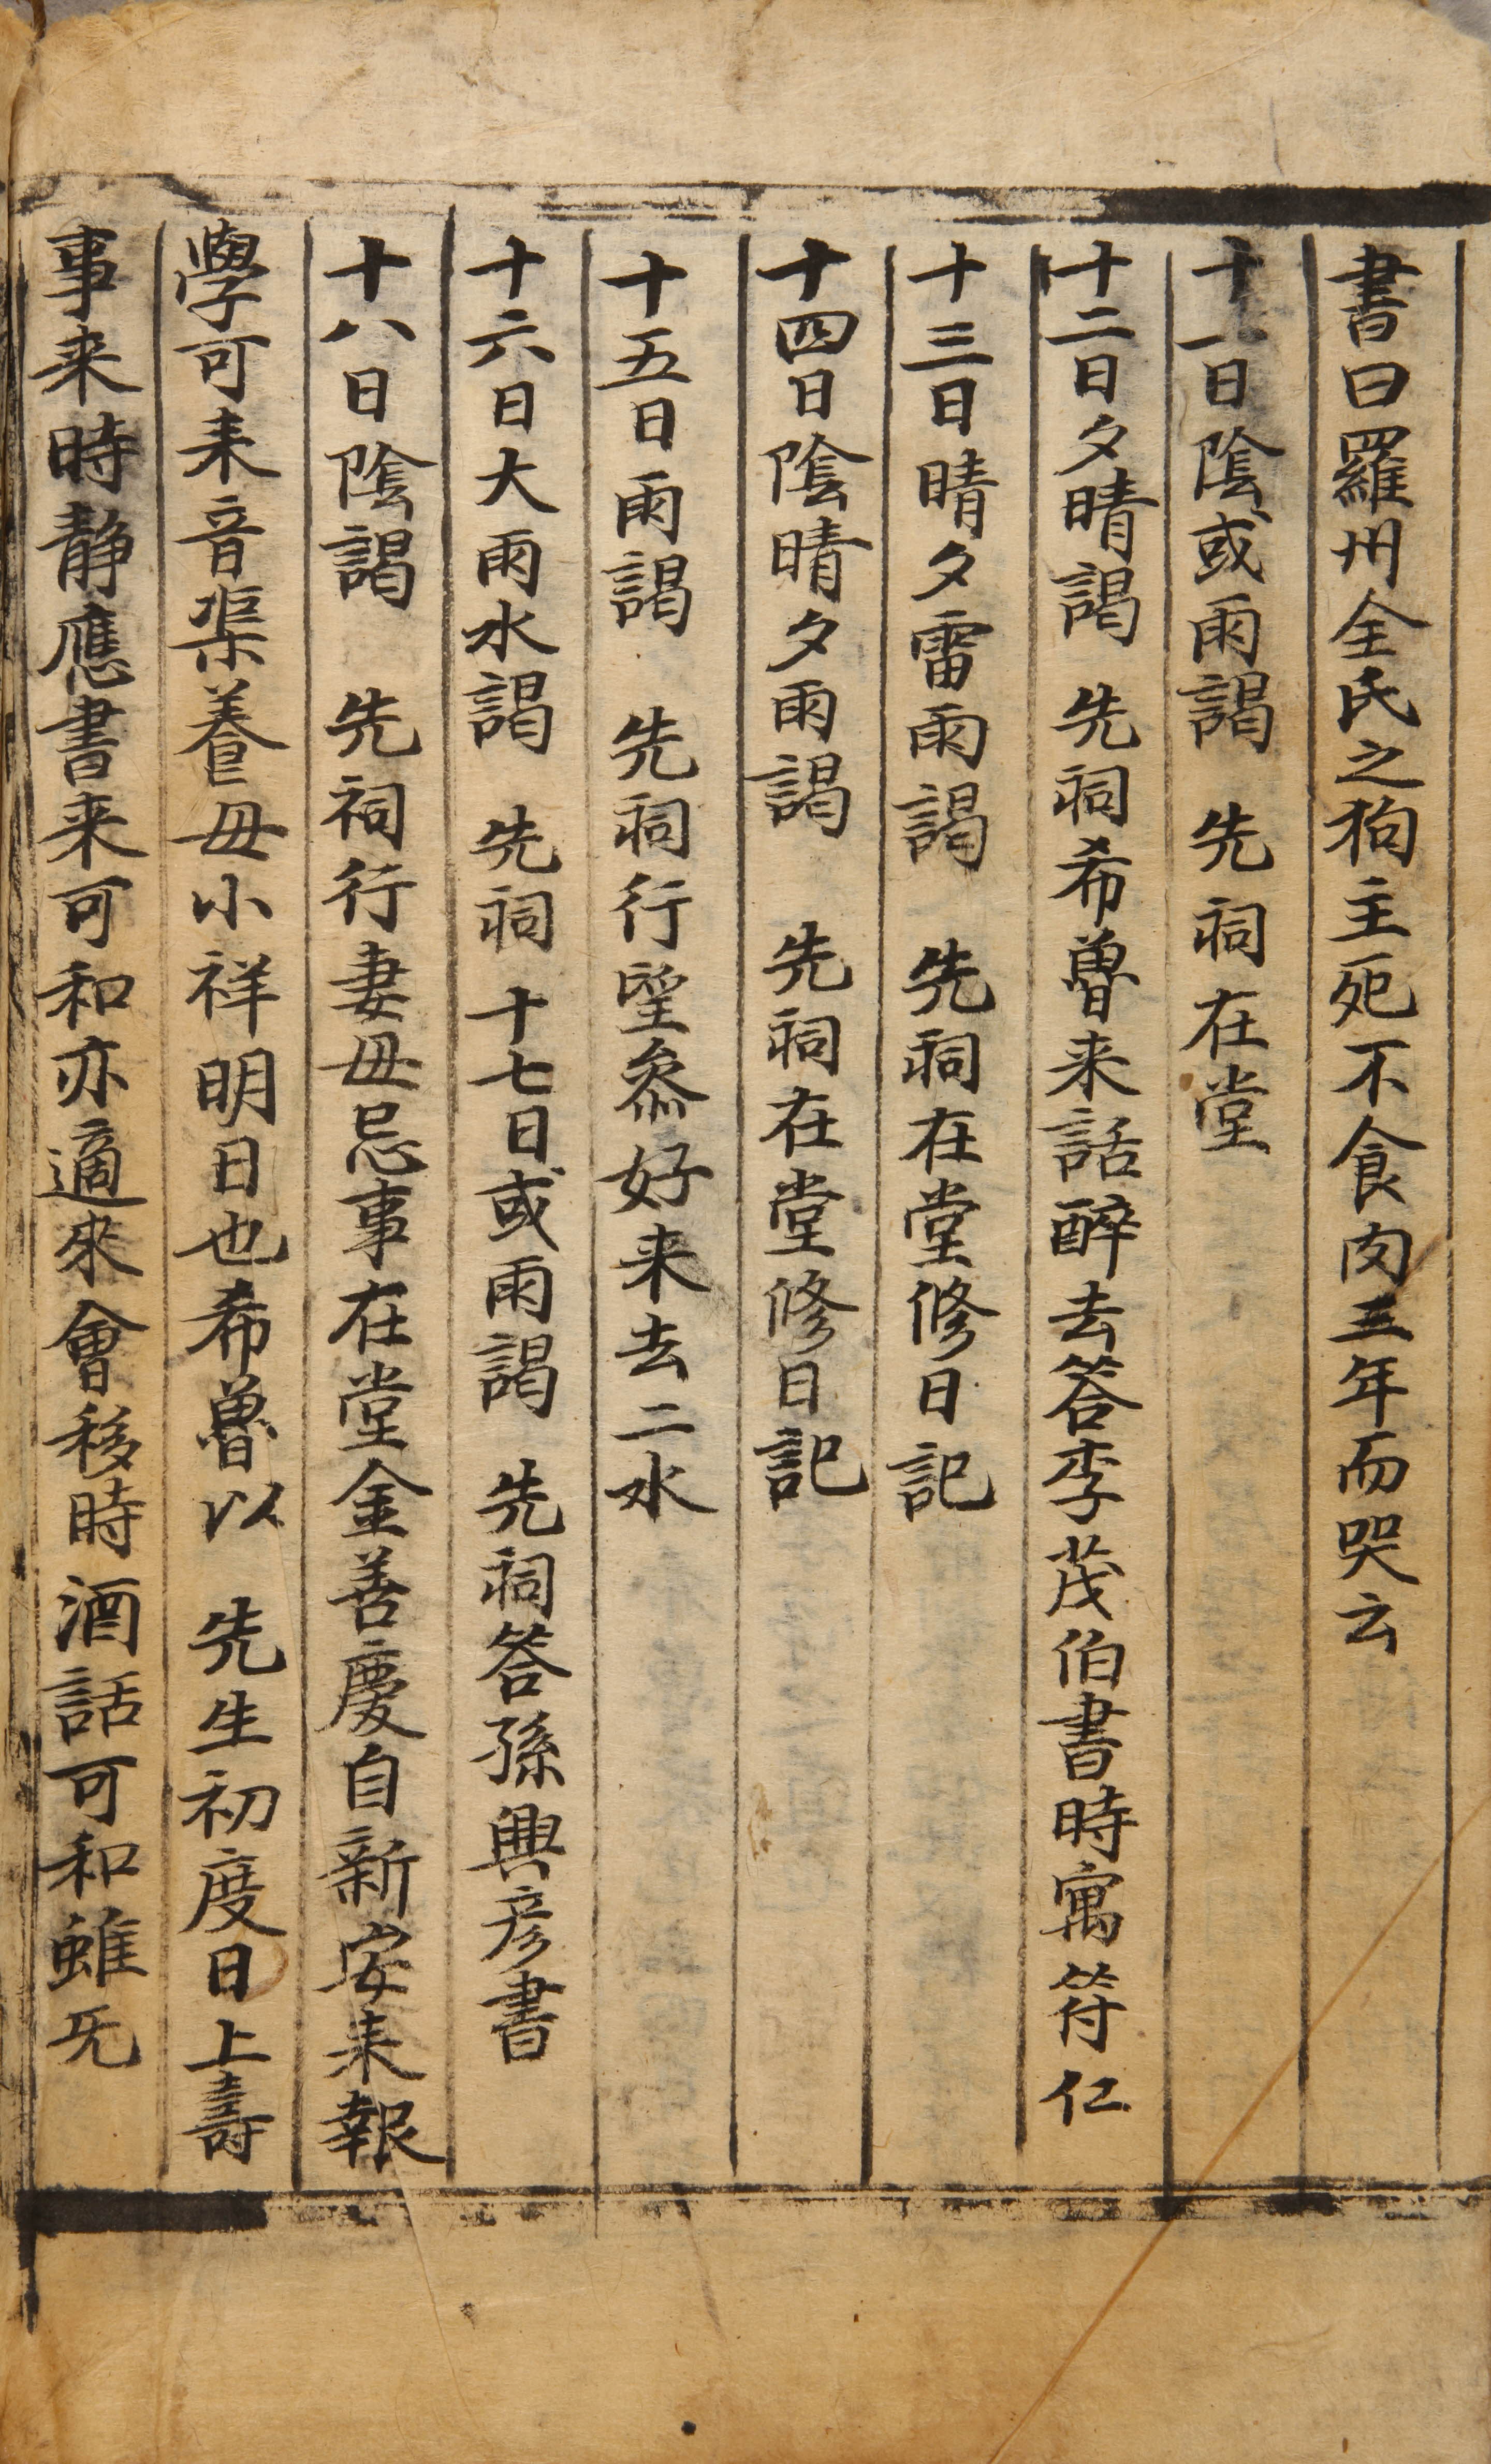 書曰羅州全氏之狗主死不食肉三年而哭云
十一日陰或雨謁 先祠在堂
十二日夕晴謁 先祠希魯来話醉去答李茂伯書時寓符仁
十三日晴夕雷雨謁 先祠在堂修日記
十四日陰晴夕雨謁 先祠在堂修日記
十五日雨謁 先祠行望叅好来去二水
十六日大雨水謁 先祠 十七日或雨謁 先祠答孫興彦書
十八日陰謁 先祠行妻母忌事在堂金善慶自新安来報
學可来音渠養母小祥明日也希魯以 先生初度日上壽
事来時静應書来可和亦適來會移時酒話可和雖旡